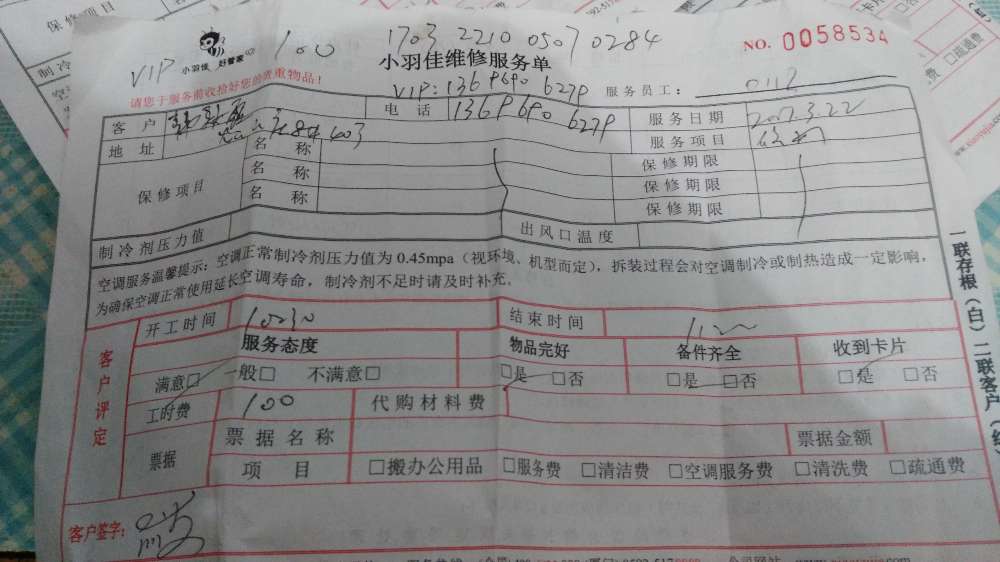 1703 2210 0507 0284
NO. 0058534
VIP 100
小羽佳 好管家
小羽佳维修服务单
请您于服务前收拾好您的贵重物品！
VIP: 1369690 6279 服务员工：0112
客户 电话 1369690 6279 服务日期 2017.3.22
地址 403 服务项目
保修项目
名称 保修期限
名称 保修期限
名称 保修期限
制冷剂压力值 出风口温度
空调服务温馨提示：空调正常制冷剂压力值为 0.45mpa（视环境、机型而定），拆装过程会对空调制冷或制热造成一定影响，
为确保空调正常使用延长空调寿命，制冷剂不足时请及时补充。
客户评定
开工时间 10:30 结束时间
服务态度 物品完好 备件齐全 收到卡片
满意□ 一般□ 不满意□ □是 □否 □是 □否 □是 □否
工时费 100 代购材料费
票据 票据名称 票据金额
项目 □搬办公用品 □服务费 □清洁费 □空调服务费 □清洗费 □疏通费
客户签字：
一联存根（白）二联客户（
保修项目
制冷
□疏通费